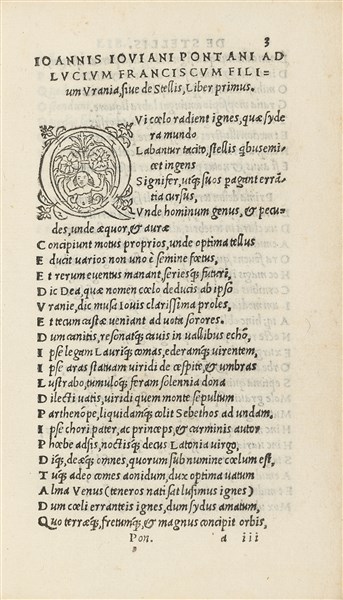 3
IOANNIS IOVIANI PONTANI AD
LVCIVM FRANCISCVM FILI=
um Vrania, siue de Stellis, Liber primus.
QVi cœlo radient ignes, quæ syde
ra mundo
Labantur tacito, stellis qbus emi=
cet ingens
Signifer, utq; suos pagant errā=
tia cursus,
Vnde hominum genus, & pecu=
des, unde æquor, & auræ
Concipiunt motus proprios, unde optima tellus
Educit uarios non uno è semine fœtus,
Et rerum euentus manant, seriesq; futuri,
Dic Dea, quæ nomen cœlo deducis ab ipso
Vranie, dic musa Iouis clarissima proles,
Et tecum castæ ueniant ad uota sorores.
Dum canitis, resonatq; cauis in uallibus echo,
Ipse legam Lauriq; comas, ederamq; uirentem,
Ipse aras statuam uiridi de cæspite, & umbras
Lustrabo, tumuloq; feram solennia dona
Dilecti uatis, uiridi quem monte sepultum
Parthenope, liquidamq; colit Sebethos ad undam,
Ipse chori pater, ac princeps, & carminis autor
Phœbe adsis, noctisq; decus Latonia uirgo,
Diq;, deæq; omnes, quorum sub numine cœlum est,
Tuq; adeo comes aonidum, dux optima uatum
Alma Venus (teneros nati sat lusimus ignes)
Dum cœli erranteis ignes, dum sydus amatum,
Quo terræq;, fretumq;, & magnus concipit orbis,
Pon. a iii